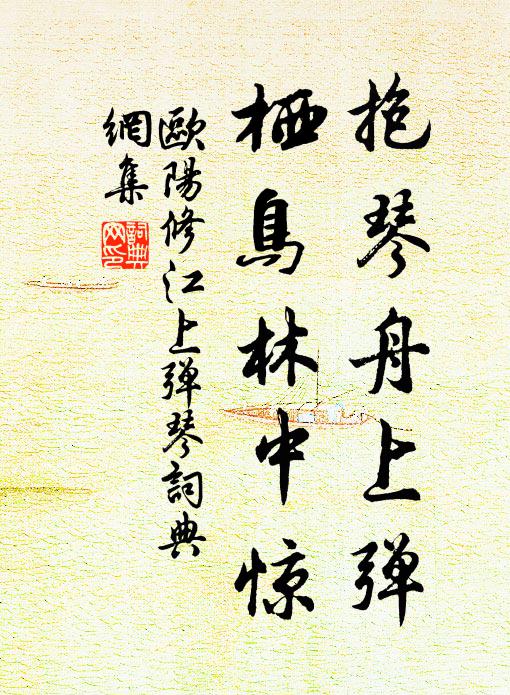 抱琴舟上弾
栖鳥林中惊
歐陽修江上弾琴詞典
網集
詞典
网印